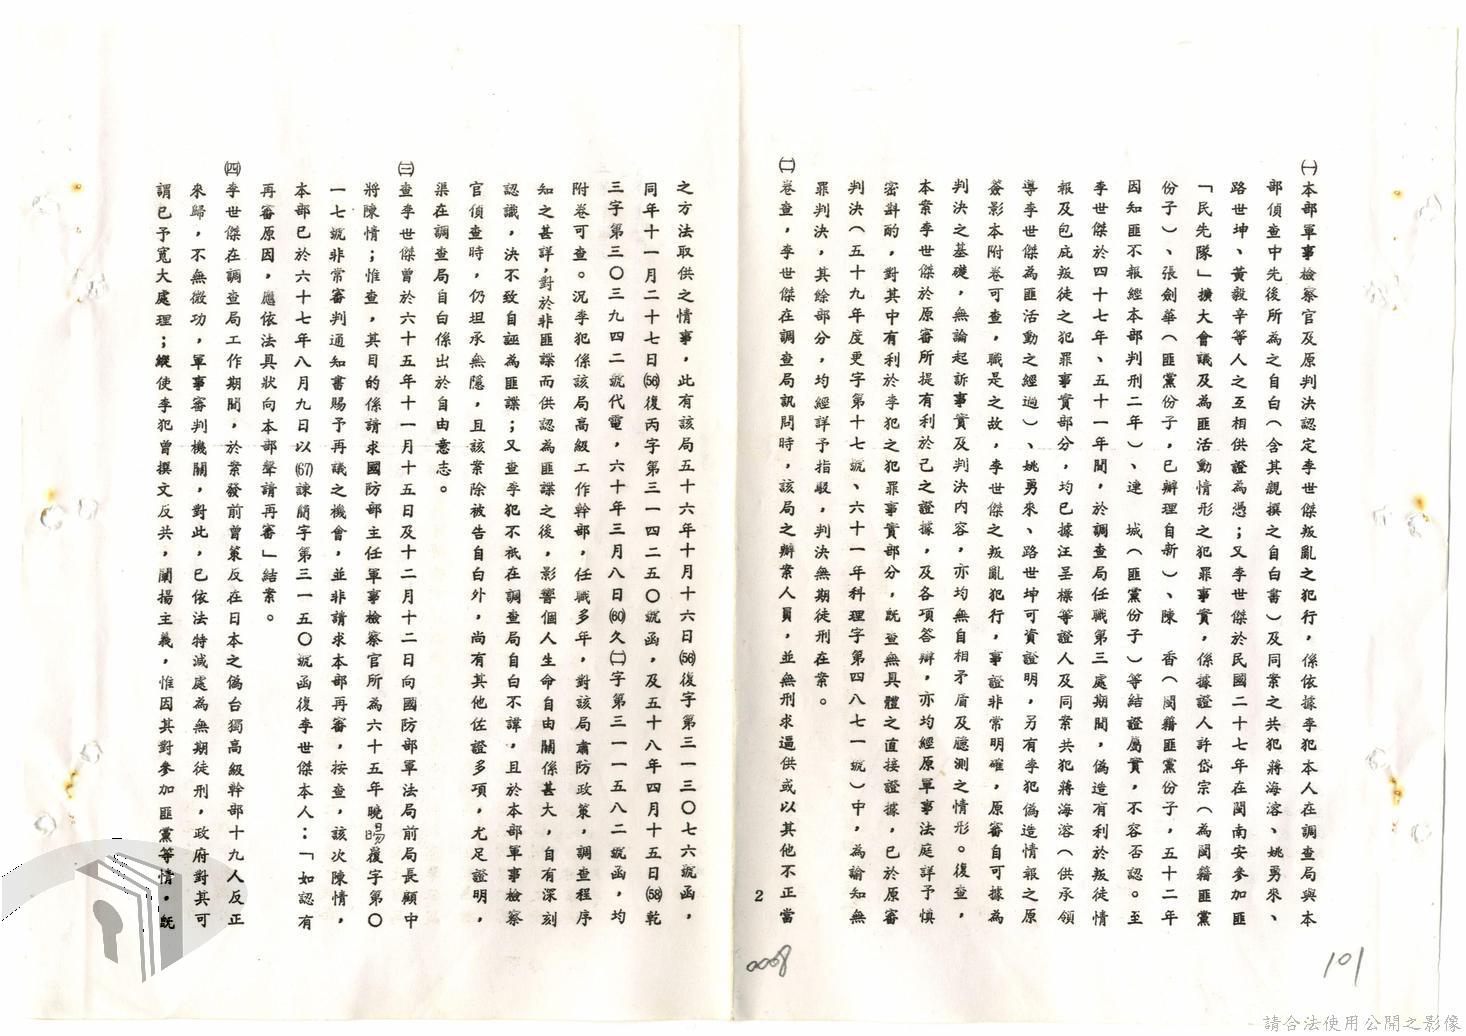 ㈠本部軍事檢察官及原判決認定李世傑叛亂之犯行，係依據李犯本人在調查局與本
部偵查中先後所為之自白（含其親撰之自白書）及同案之共犯蔣海溶、姚勇來、
路世坤、黃毅辛等人之互相供證為憑；又李世傑於民國二十七年在閩南安參加匪
「民先隊」擴大會議及為匪活動情形之犯罪事實，係據證人許岱宗（為閩籍匪黨
份子）、張劍華（匪黨份子，已辦理自新）、陳　香（閩籍匪黨份子，五十二年
因知匪不報經本部判刑二年）、連　城（匪黨份子）等結證屬實，不容否認。至
李世傑於四十七年、五十一年間，於調查局任職第三處期間，偽造有利於叛徒情
報及包庇叛徒之犯罪事實部分，均已據汪呈標等證人及同案共犯蔣海溶（供承領
導李世傑為匪活動之經過）、姚勇來、路世坤可資證明，另有李犯偽造情報之原
簽影本附卷可查，職是之故，李世傑之叛亂犯行，事證非常明確，原審自可據為
判決之基礎，無論起訴事實及判決內容，亦均無自相矛盾及臆測之情形。復查，
本案李世傑於原審所提有利於己之證據，及各項答辯，亦均經原軍事法庭詳予慎
密斟酌，對其中有利於李犯之犯罪事實部分，既查無具體之直接證據，已於原審
判決（五十九年度更字第十七號、六十一年科理字第四八七一號）中，為諭知無
罪判決，其餘部分，均經詳予指駁，判決無期徒刑在案。
㈡卷查，李世傑在調查局訊問時，該局之辦案人員，並無刑求逼供或以其他不正當
2
之方法取供之情事，此有該局五十六年十月十六日(56)復字第三一三〇七六號函，
同年十一月二十七日(56)復丙字第三一四二五〇號函，及五十八年四月十五日(58)乾
三字第三〇三九四二號代電，六十年三月八日(60)久㈡字第三一一五八二號函，均
附卷可查。況李犯係該局高級工作幹部，任職多年，對該局肅防政策，調查程序
知之甚詳，對於非匪諜而供認為匪諜之後，影響個人生命自由關係甚大，自有深刻
認識，決不致自誣為匪諜；又查李犯不祇在調查局自白不諱，且於本部軍事檢察
官偵查時，仍坦承無隱，且該案除被告自白外，尚有其他佐證多項，尤足證明，
渠在調查局自白係出於自由意志。
㈢查李世傑曾於六十五年十一月十五日及十二月十二日向國防部軍法局前局長顧中
將陳情；惟查，其目的係請求國防部主任軍事檢察官所為六十五年曉暘覆字第〇
一七號非常審判通知書賜予再議之機會，並非請求本部再審，按查，該次陳情，
本部已於六十七年八月九日以(67)諫簡字第三一五〇號函復李世傑本人：「如認有
再審原因，應依法具狀向本部聲請再審」結案。
㈣李世傑在調查局工作期間，於案發前曾策反在日本之偽台獨高級幹部十九人反正
來歸，不無微功，軍事審判機關，對此，已依法特減處為無期徒刑，政府對其可
謂已予寬大處理；縱使李犯曾撰文反共，闡揚主義，惟因其對參加匪黨等情，既
0008
101
請合法使用公開之影像